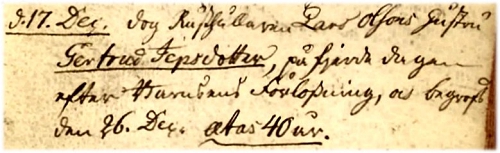 d. 17. Dec. dog Ryttaren Lars Olsons Hustru
Gertrud Jepsdotter, på fjerde dagen
efter Barnsens Förlossning, och begrofs
den 26. Dec. ætas 40 år.